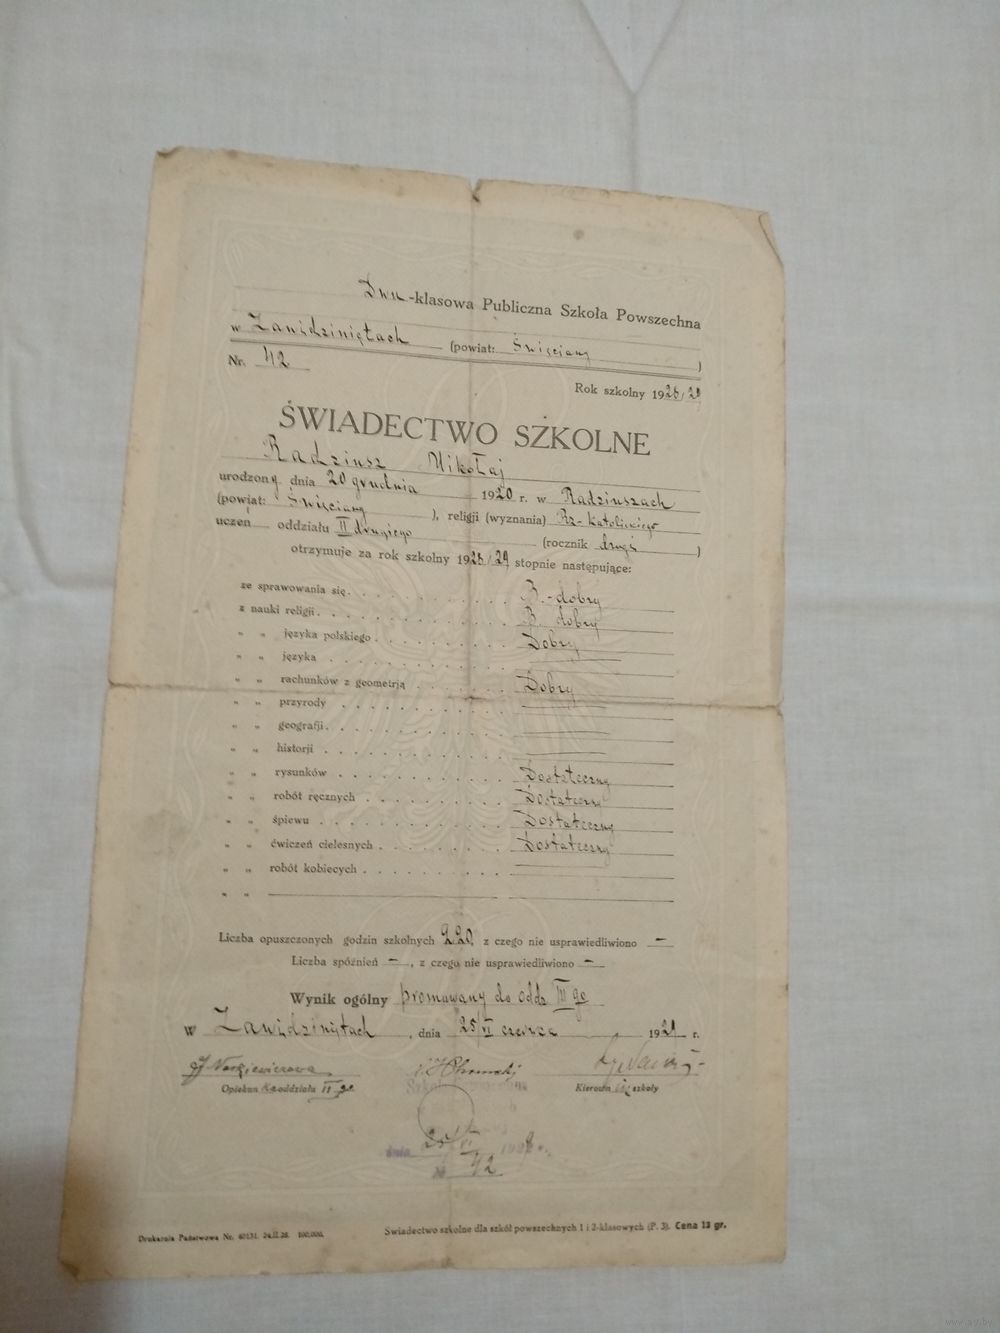 Dwu-klasowa Publiczna Szkoła Powszechna
w Zawidziniętach (powiat: Święciany )
Nr. 42
Rok szkolny 1928/29
ŚWIADECTWO SZKOLNE
Radziusz Mikołaj
urodzony dnia 20 grudnia 1920 r. w Radziuszach
(powiat: Święciany ), religji (wyznania) Rz-katolickiego
uczeń oddziału II drugiego (rocznik drugi )
otrzymuje za rok szkolny 1928/29 stopnie następujące:
ze sprawowania się B.-dobry
z nauki religji B. dobry
" " języka polskiego Dobry
" " języka
" " rachunków z geometrją Dobry
" " przyrody
" " geografji
" " historji
" " rysunków Dostateczny
" " robót ręcznych Dostateczny
" " śpiewu Dostateczny
" " ćwiczeń cielesnych Dostateczny
" " robót kobiecych
" "
Liczba opuszczonych godzin szkolnych 220, z czego nie usprawiedliwiono —
Liczba spóźnień —, z czego nie usprawiedliwiono —
Wynik ogólny promowany do oddz III go
W Zawidziniętach, dnia 25/VI czerwca 1929 r.
Opiekun ka oddziału II go Kierown ik szkoły
dnia 25/VI
42
Drukarnia Państwowa Nr. 60131. 24.II.28. 100.000.
Świadectwo szkolne dla szkół powszechnych 1 i 2-klasowych (P. 3). Cena 13 gr.
www.ay.by